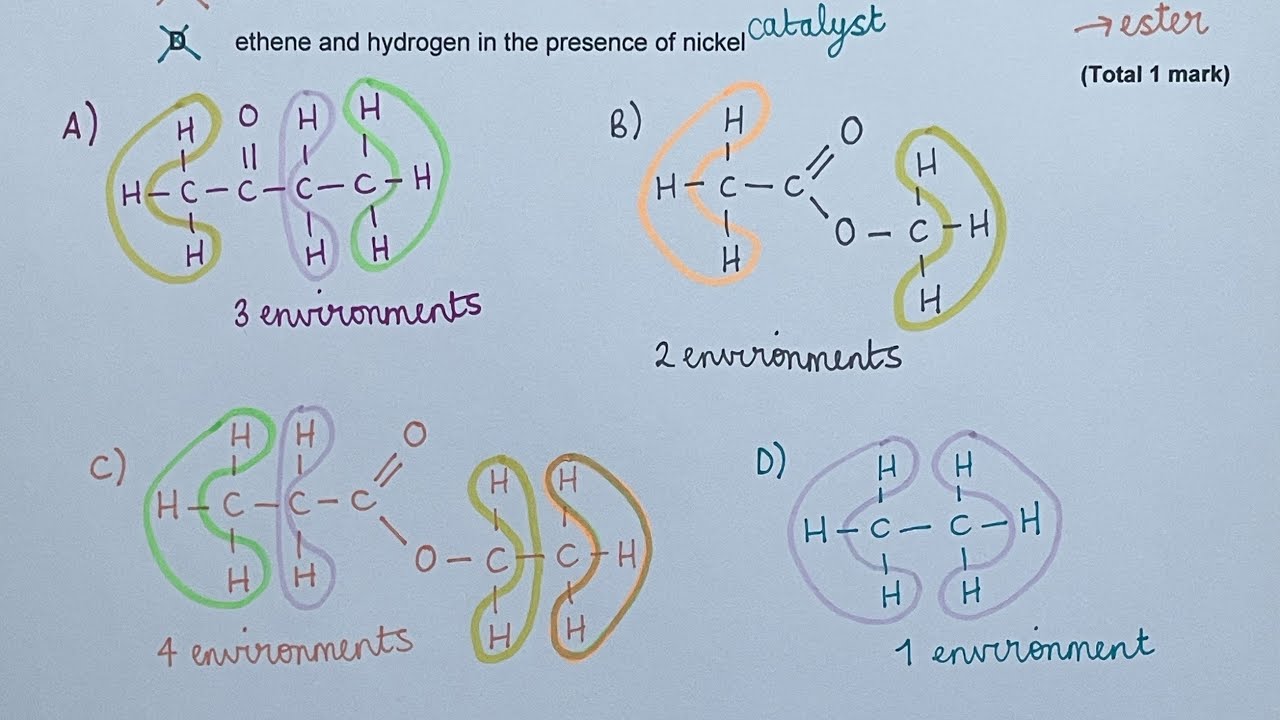 D ethene and hydrogen in the presence of nickel catalyst
→ ester
(Total 1 mark)
A)
H O H H
H – C – C – C – C – H
H H H
3 environments
B)
H O H
H – C – C
O – C – H
H H
2 environments
C)
H H O H H
H – C – C – C
O – C – C – H
H H H H
4 environments
D)
H H
H – C – C – H
H H
1 environment